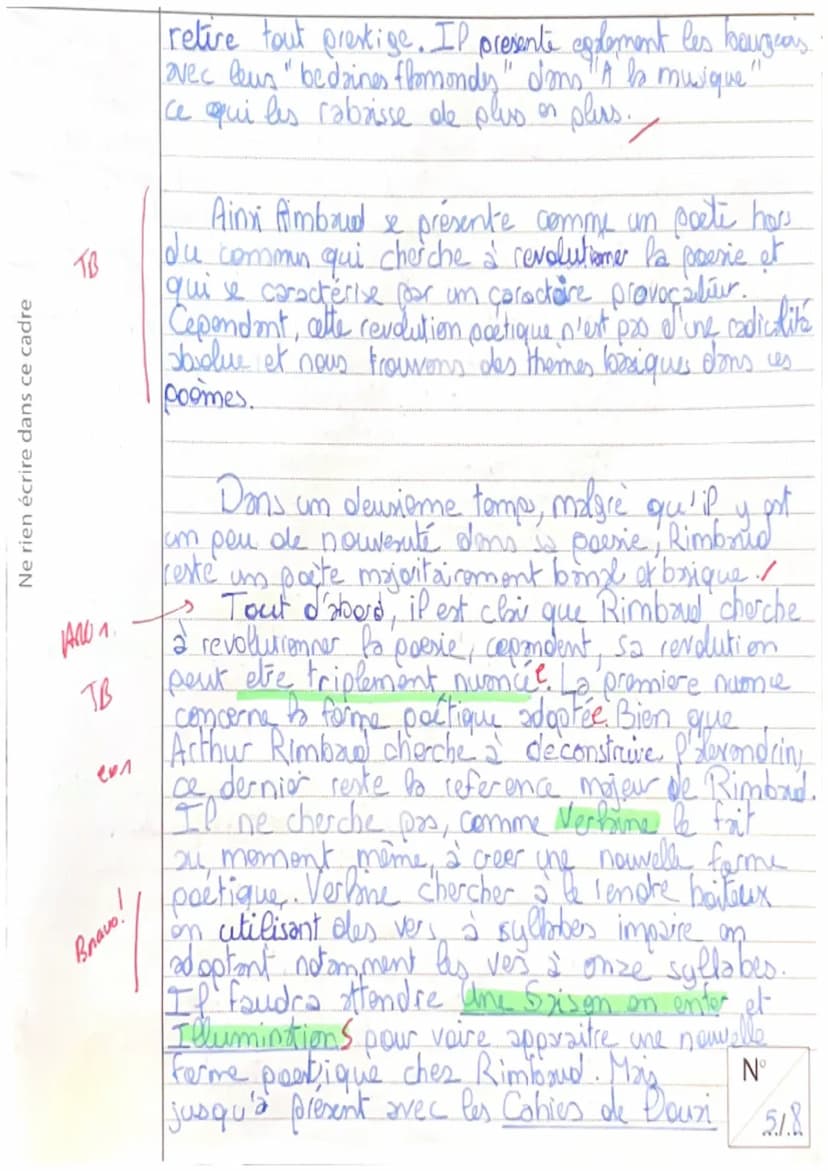 retire tout prestige. Il presente egalement les bourgeois
avec leurs "bedaines flamondes" dans "A la musique"
ce qui les rabaisse de plus en plus.
Ainsi Rimbaud se présente comme un poete hors
TB
du commun qui cherche à revolutionner la poesie et
qui se caractérise par un caractère provocateur.
Cependant, cette revolution poétique n'est pas d'une radicalité
absolue et nous trouvons des thèmes lyriques dans ces
poèmes.
Ne rien écrire dans ce cadre
Dans un deuxieme temps, malgré qu'il y est
un peu de nouveauté dans sa poesie, Rimbaud
reste un poète majoritairement banal et basique.
Tout d'abord, il est clair que Rimbaud cherche
à revolutionner la poesie, cependant, sa revolution
TB
peut etre triplement nuancée. La premiere nuance
concerne la forme poétique adoptée. Bien que
Arthur Rimbaud cherche à déconstruire l'alexandrin,
ce dernier reste la reference majeur de Rimbaud.
Il ne cherche pas, comme Verlaine le fait
au moment même, à creer une nouvelle forme
poétique. Verlaine chercher à le rendre boiteux
Bravo!
en utilisant des vers à syllabes impaire en
adoptant notamment les vers à onze syllabes.
Il faudra attendre Une Saison en enfer et
Illuminations pour voire apparaitre une nouvelle
forme poétique chez Rimbaud. Mais
jusqu'à présent avec les Cahies de Douai
N°
5/8